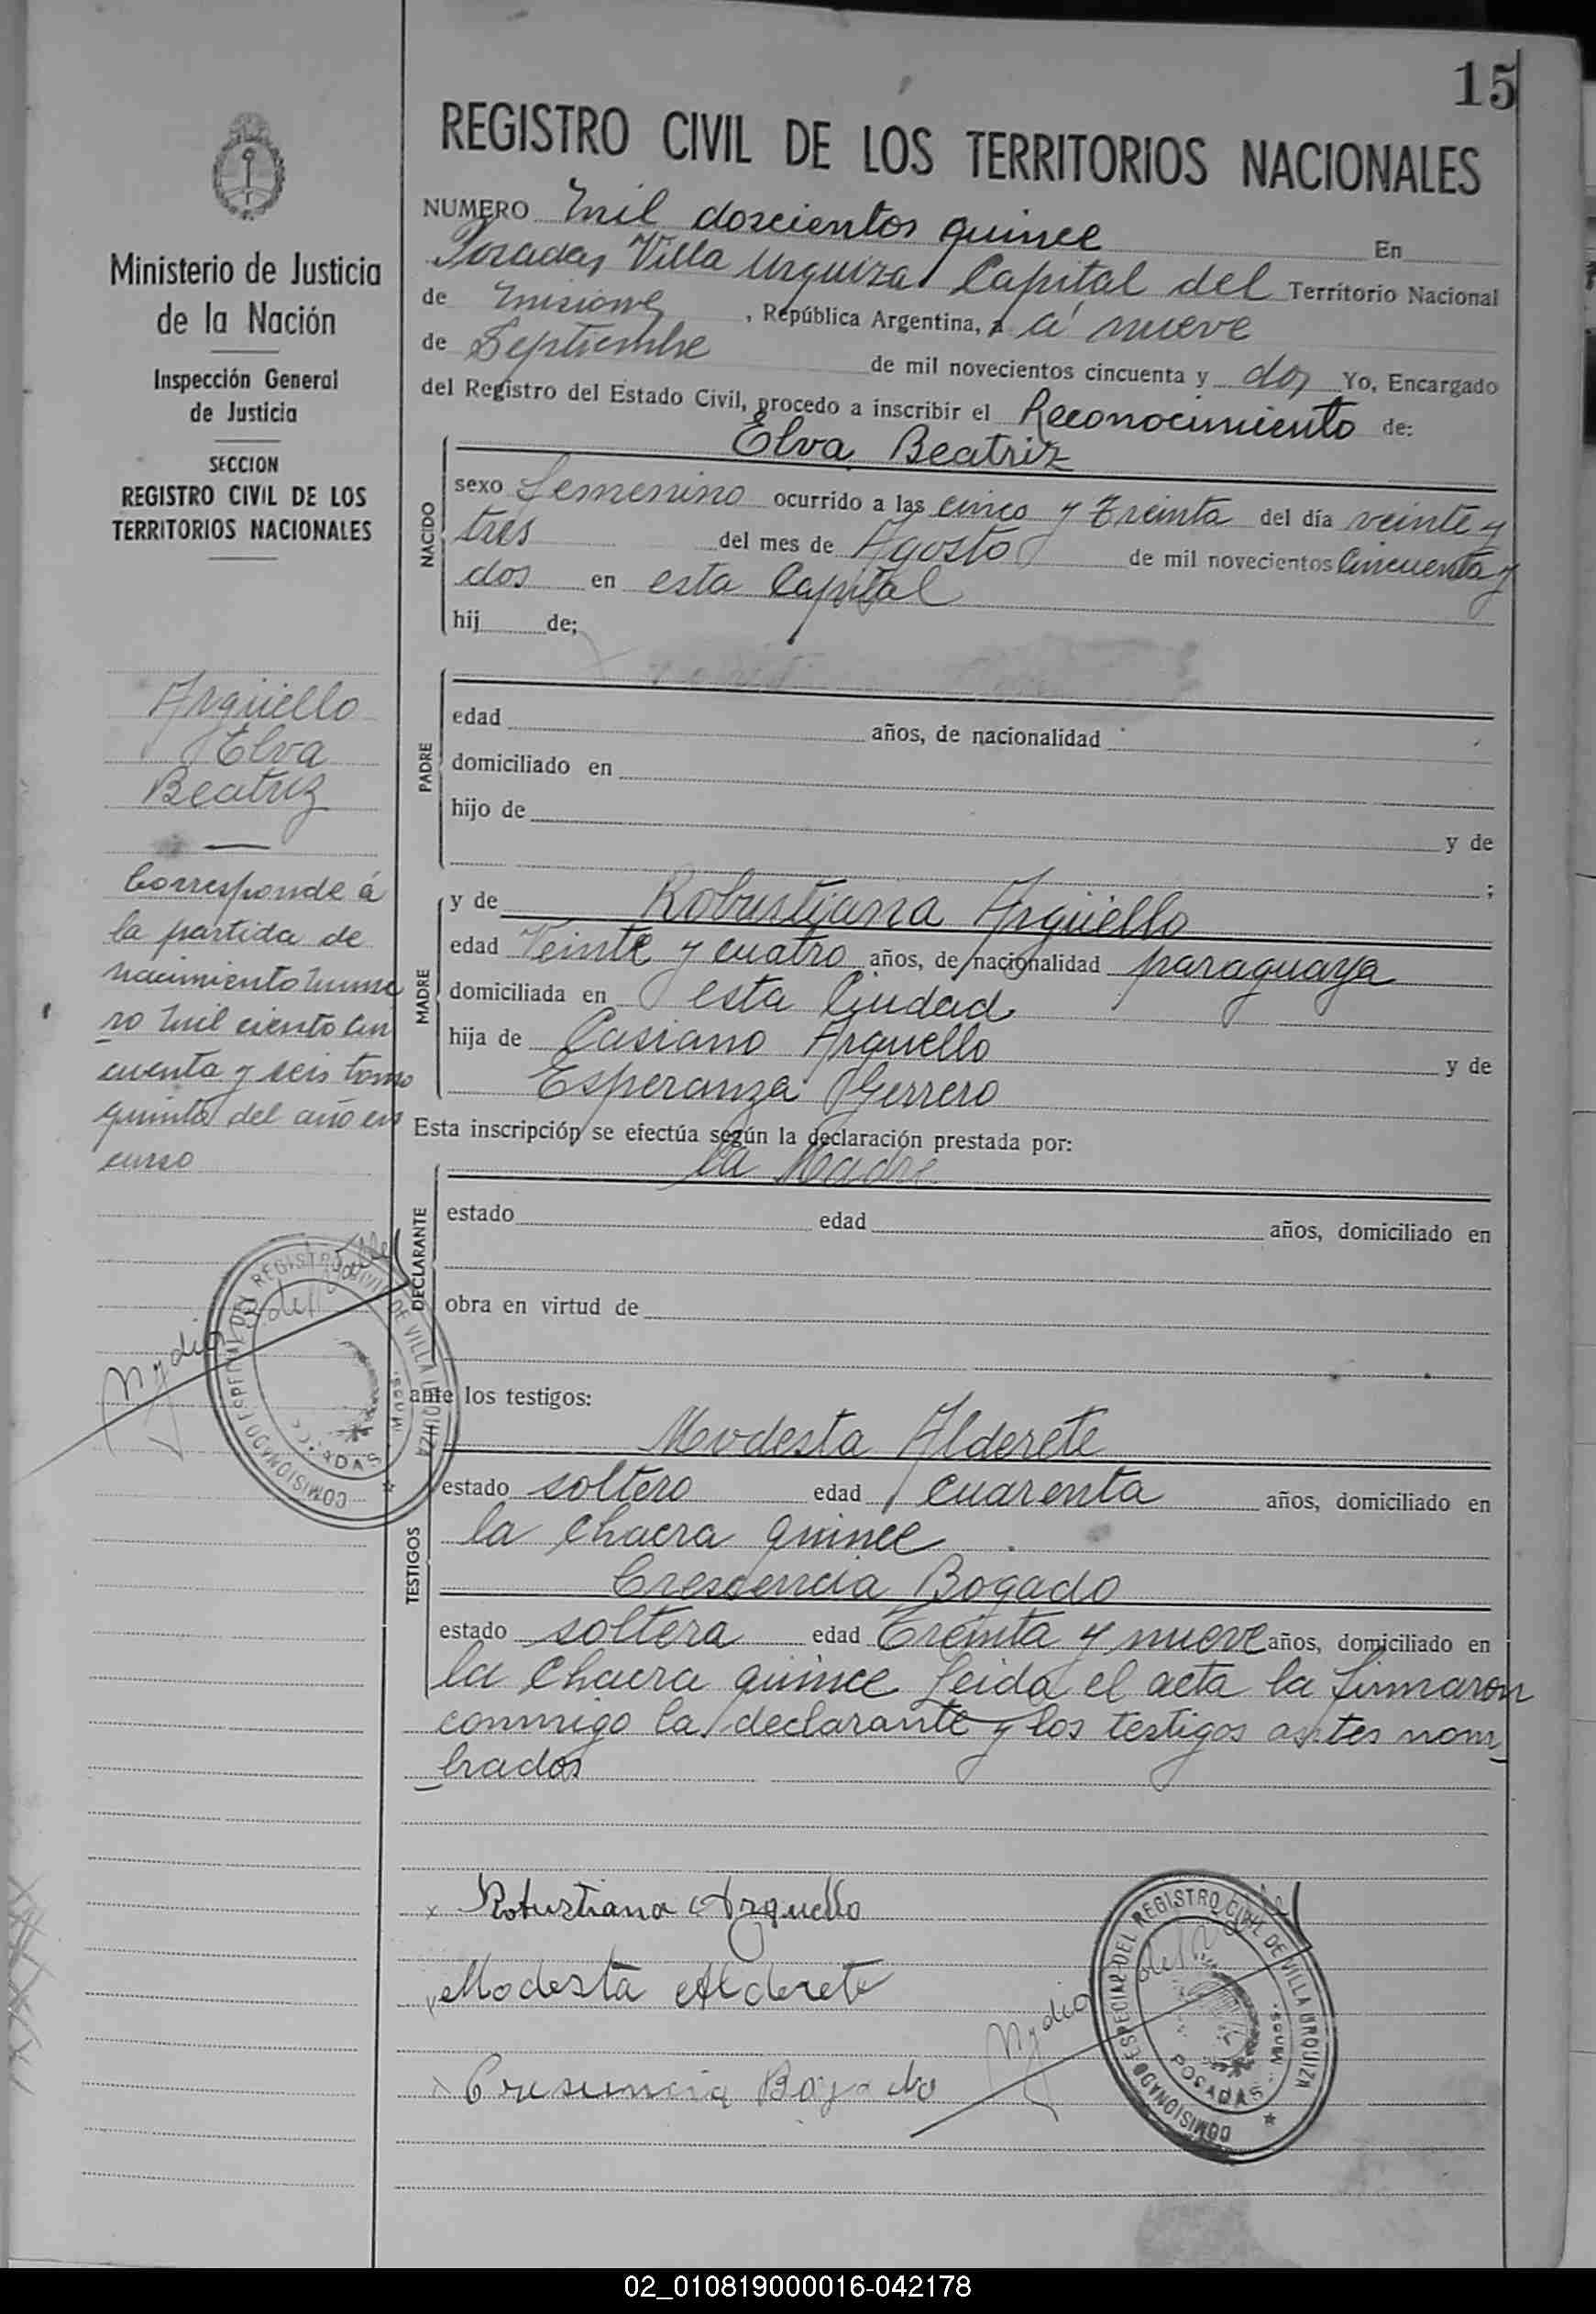 15
REGISTRO CIVIL DE LOS TERRITORIOS NACIONALES
Ministerio de Justicia
de la Nación
Inspección General
de Justicia
SECCION
REGISTRO CIVIL DE LOS
TERRITORIOS NACIONALES
Argüello
Elva
Beatriz
Corresponde á
la partida de
nacimiento nume
ro mil ciento cin
cuenta y seis tomo
quinto del año en
curso
NUMERO Mil doscientos quince En
Posadas Villa Urquiza Capital del Territorio Nacional
de Misiones, República Argentina, a á nueve
de Septiembre de mil novecientos cincuenta y dos Yo, Encargado
del Registro del Estado Civil, procedo a inscribir el Reconocimiento de:
Elva Beatriz
NACIDO
sexo femenino ocurrido a las cinco y treinta del día veinte y
tres del mes de Agosto de mil novecientos cincuenta y
dos en esta Capital
hij de;
PADRE
edad años, de nacionalidad
domiciliado en
hijo de y de
;
MADRE
y de Robustiana Argüello
edad Veinte y cuatro años, de nacionalidad paraguaya
domiciliada en esta Ciudad
hija de Casiano Arguello y de
Esperanza Gerrero
Esta inscripción se efectúa según la declaración prestada por:
la Madre
DECLARANTE
estado edad años, domiciliado en
obra en virtud de
ante los testigos:
TESTIGOS
Modesta Alderete
estado soltero edad cuarenta años, domiciliado en
la chacra quince
Crescencia Bogado
estado soltera edad Treinta y nueve años, domiciliado en
la chacra quince Leida el acta la firmaron
conmigo la declarante y los testigos antes nom
brados
COMISIONADO ESPECIAL DEL REGISTRO CIVIL DE VILLA URQUIZA
POSADAS - Mnes.
x Robustiana Arguello
Modesta Alderete
x Cresencia Bogado
Nydia
COMISIONADO ESPECIAL DEL REGISTRO CIVIL DE VILLA URQUIZA
POSADAS - Mnes.
02_010819000016-042178